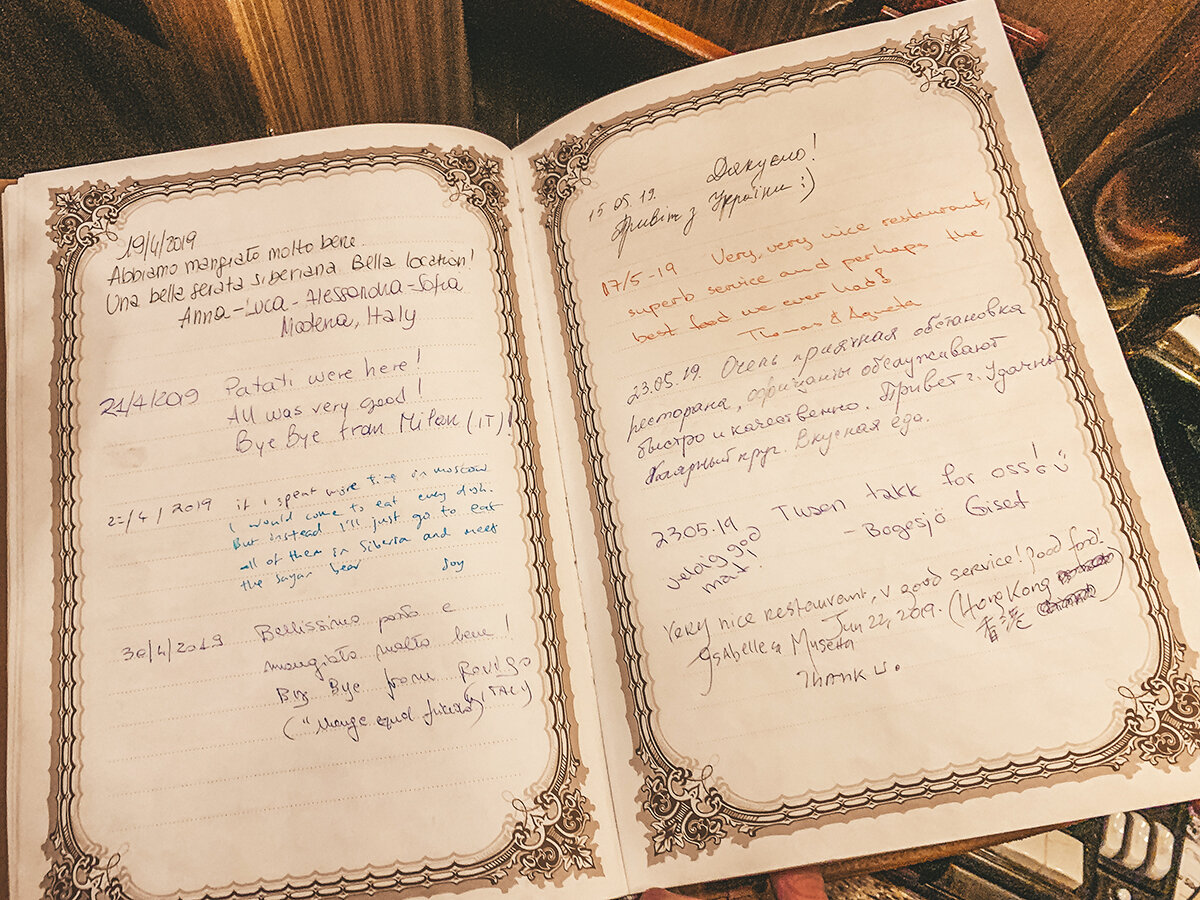 19/4/2019
Abbiamo mangiato molto bene.
Una bella serata siberiana. Bella location!
Anna-Luca-Alessandra-Sofia
Modena, Italy
21/4/2019 Patati were here!
All was very good!
Bye Bye from Milan (IT)!
22/4/2019 if i spent more time in moscow
I would come to eat every dish.
But instead I'll just go to eat
all of them in Siberia and meet
the sayan bear Joy
30/4/2019 Bellissimo posto e
mangiato molto bene!
Bye Bye from Rovigo
(ITALY)
15.05.19. Дякуємо!
Привіт з України :)
17/5-19 Very, very nice restaurant,
superb service and perhaps the
best food we ever had!
Thomas & Agneta
23.05.19. Очень приятная обстановка
ресторана, официанты обслуживают
быстро и качественно. Привет г. Удачный
Полярный круг. Вкусная еда.
2305.19 Tusen takk for oss!
veldig god
mat!
- Bogesjö Gised
Very nice restaurant, v good service! Good food!
Ysabelle & Musetta Jun 22, 2019. (Hong Kong
香港 )
Thank u.